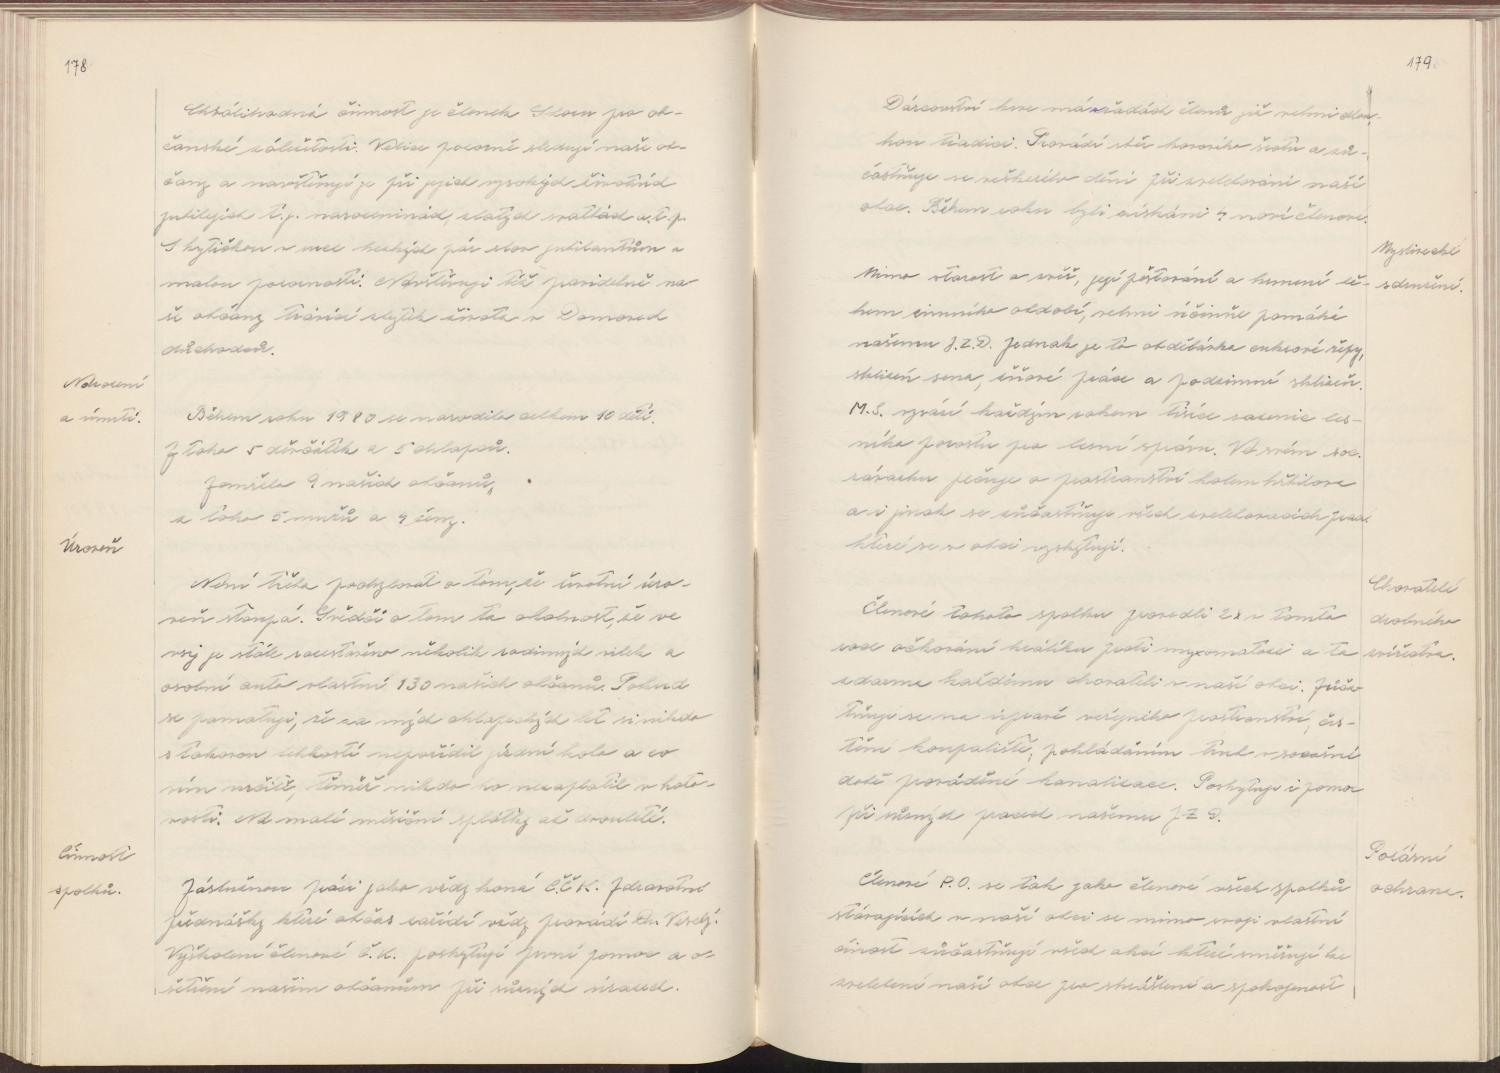 178
Chvályhodná činnost je členek Sboru pro ob-
čanské záležitosti. Velice pozorně sledují naše ob-
čany a navštěvují je při jejich vysokých životních
jubilejích t.j. narozeninách, zlatých svatbách a.t.p.
S kytičkou v ruce hezkých pár slov jubilantům a
malou pozorností. Navštěvují též pravidelně na-
še občany trávící zbytek života v Domovech
důchodců.
Narození
a úmrtí.
Během roku 1980 se narodilo celkem 10 dětí.
Z toho 5 děvčátek a 5 chlapců.
Zemřelo 9 našich občanů,
z toho 5 mužů a 4 ženy.
Úroveň
Není třeba pochybovat o tom, že životní úro-
veň stoupá. Svědčí o tom ta okolnost, že ve
vsi je stále rozestavěno několik rodinných vilek a
osobní auto vlastní 130 našich občanů. Pokud
se pamatuji, že za mých chlapeckých let si nikdo
s takovou lehkostí nepořídil jízdní kolo a co
vím určitě, téměř nikdo ho nezaplatil v hoto-
vosti. Na malé měsíční splátky až dvouleté.
Činnost
spolků.
Záslužnou práci jako vždy koná Č.Č.K. Zdravotní
přednášky které občas zařídí vždy provádí Dr. Veselý.
Vyškolení členové Č.K. poskytují první pomoc a o-
šetření našim občanům při různých úrazech.
179.
Dárcovství krve má v řadách členů již velmi dlou-
hou tradici. Provádí sběr kovového šrotu a zú-
častňuje se veškerého dění při zvelebování naší
obce. Během roku byli získáni 4 noví členové.
Myslivecké
sdružení.
Mimo starost o zvěř, její pěstování a krmení bě-
hem zimního období, velmi účinně pomáhá
našemu J.Z.D. Jednak je to obdělávka cukrové řepy,
sklizeň sena, žňové práce a podzimní sklizeň.
M.S. vysází každým rokem tisíce sazenic les-
ního porostu pro lesní správu. Ve svém soc.
závazku pečuje o prostranství kolem hřbitova
a i jinak se zúčastňuje všech zvelebovacích prací
které se v obci vyskytují.
Chovatelé
drobného
zvířectva.
Členové tohoto spolku provedli 2x v tomto
roce očkování králíků proti myxomatose a to
zdarma každému chovateli v naší obci. Zúča-
stňují se na úpravě veřejného prostranství, čis-
tění koupaliště, pokládáním trub v současné
době prováděné kanalizace. Poskytuje i pomoc
při různých pracech našemu J.Z.D.
Požární
ochrana.
Členové P.O. se tak jako členové všech spolků
stávajících v naší obci se mimo svoji vlastní
činnost zúčastňují všech akcí které směřují ke
zvelebení naší obce pro zkrášlení a spokojenost